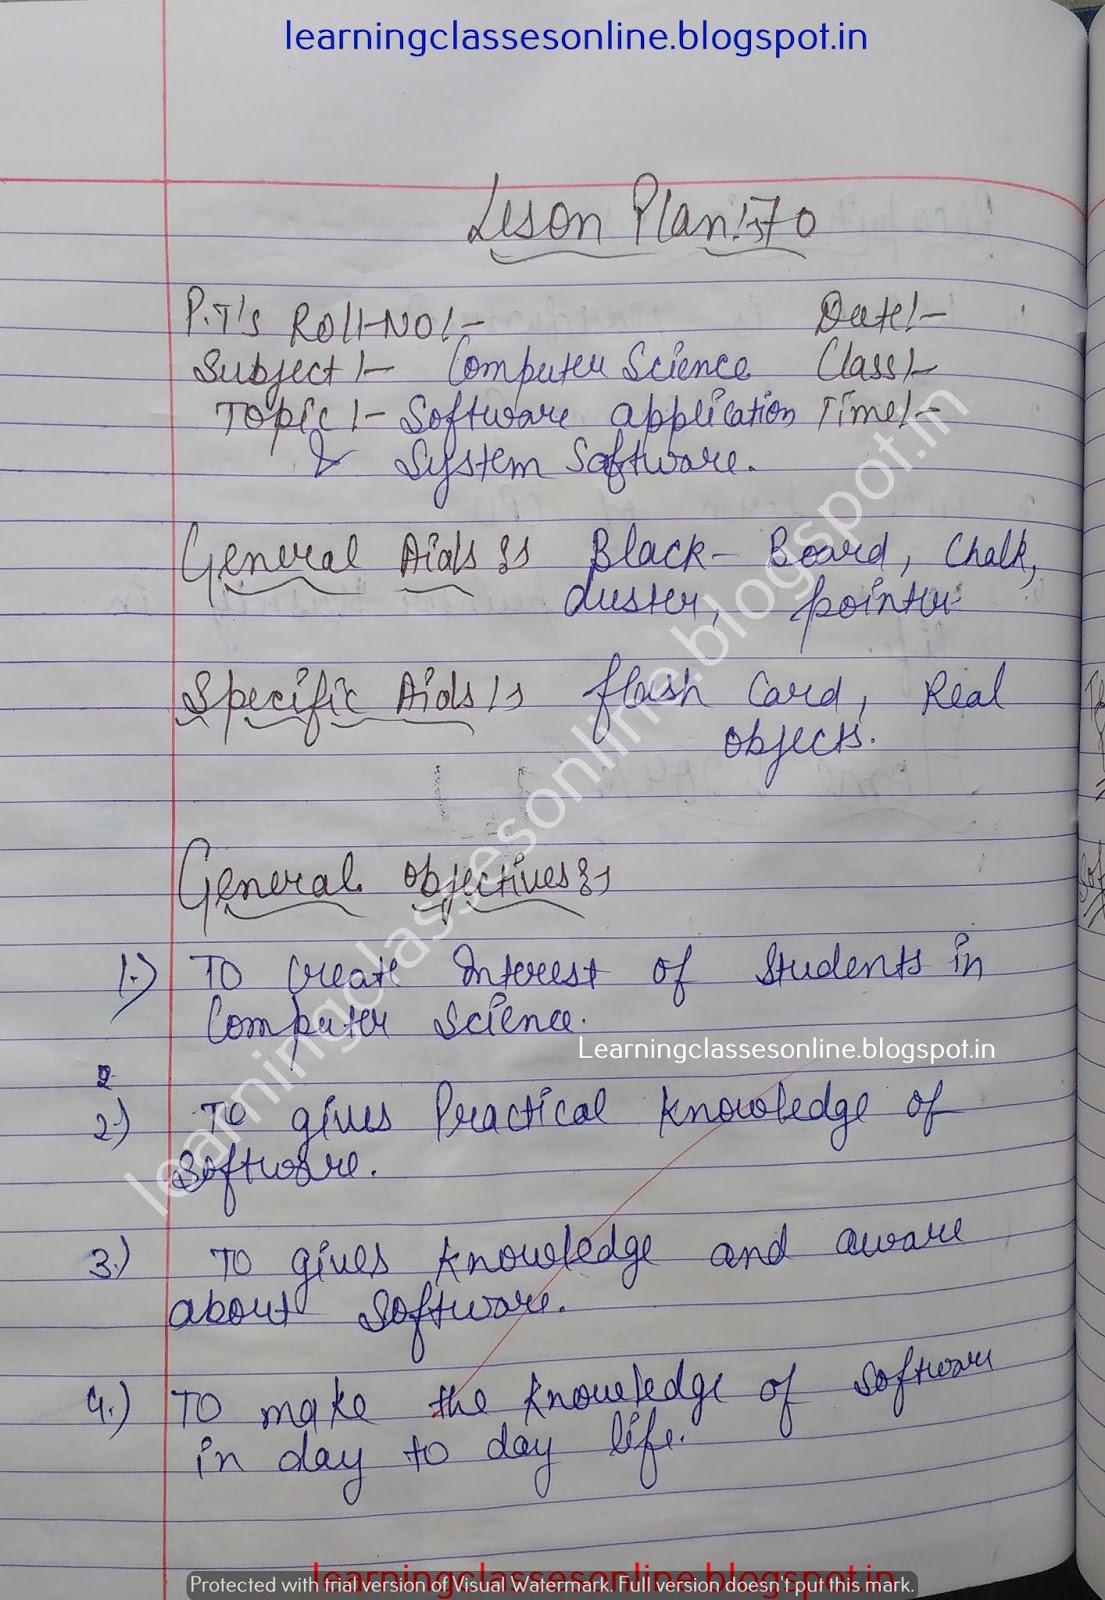 learningclassesonline.blogspot.in
Leson Plan:-70
P.T's Roll-NO:- Date:-
Subject:- Computer Science Class:-
Topic:- Software application Time:-
& System Software.
General Aids:- Black-Board, Chalk,
duster, pointer.
Specific Aids:- flash Card, Real
objects.
General objectives:-
1.) To Create Interest of Students in
Computer Science.
Learningclassesonline.blogspot.in
2
2.) To gives Practical knowledge of
software.
3.) To gives knowledge and aware
about software.
4.) To make the knowledge of software
in day to day life.
learningclassesonline.blogspot.in
learningclassesonline.blogspot.in
Protected with trial version of Visual Watermark. Full version doesn't put this mark.